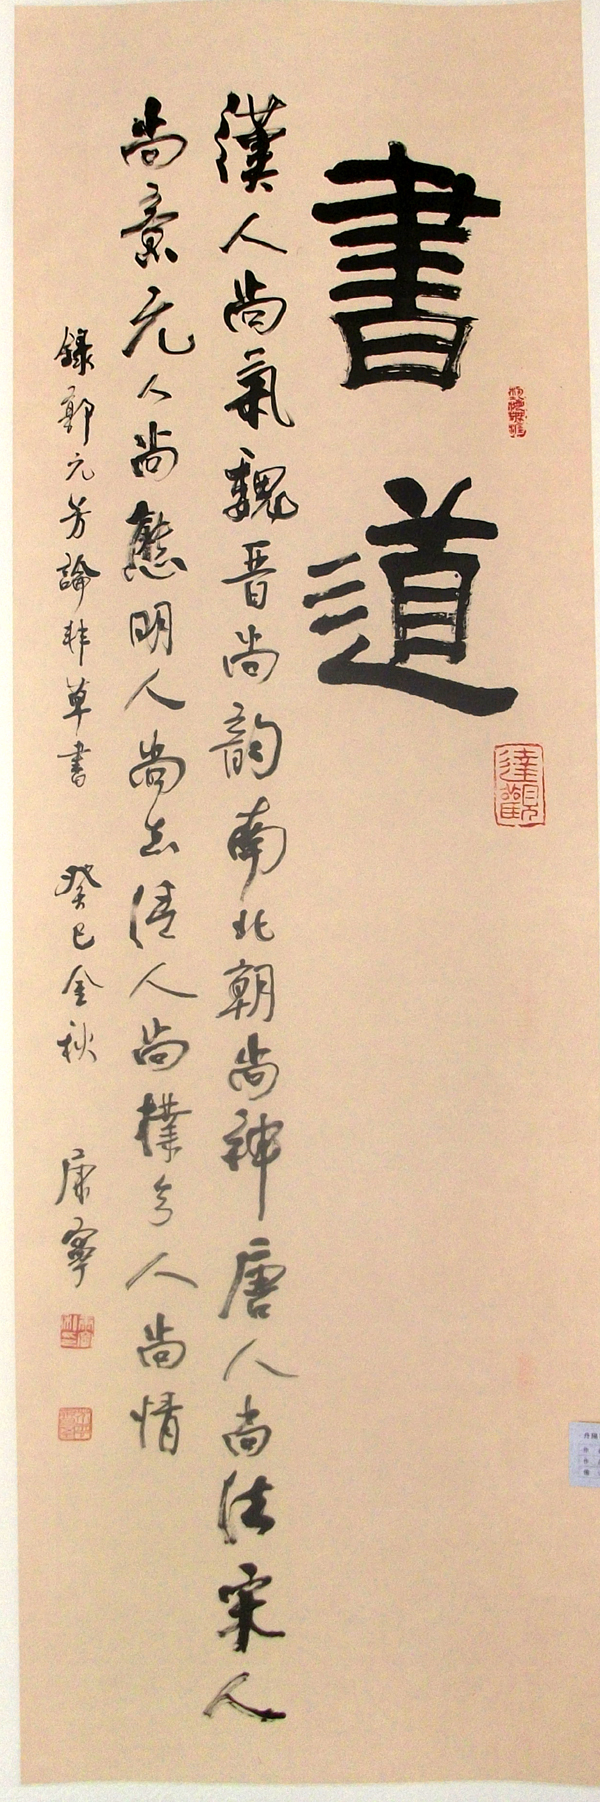 書道
漢人尚氣魏晋尚韵南北朝尚神唐人尚法宋人
尚意元人尚態明人尚志清人尚樸今人尚情
錄郭元芳論非草書 癸巳金秋 康寧
達觀